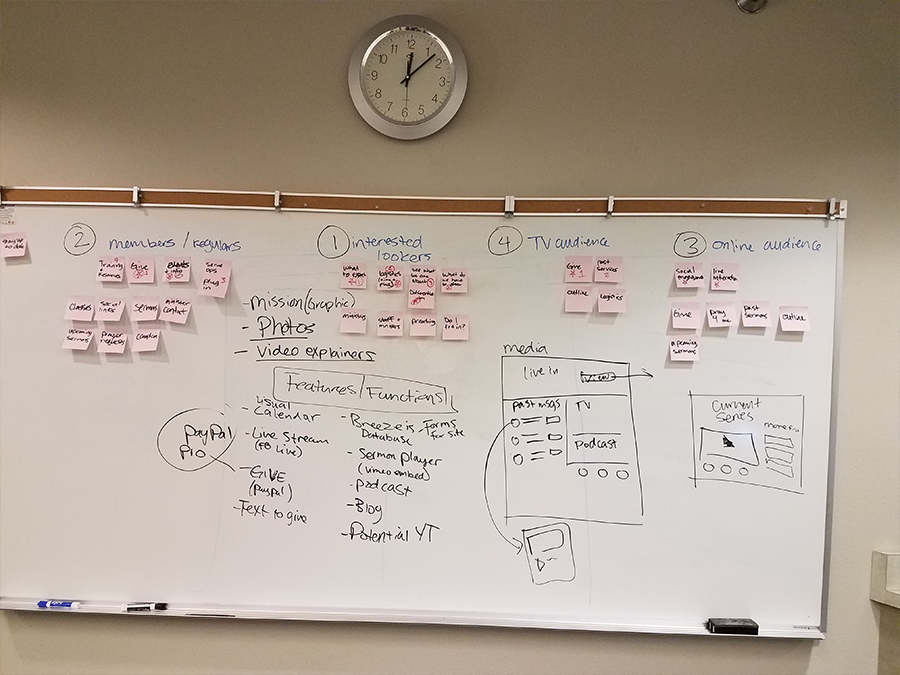 12
1
2
3
4
5
6
7
8
9
10
11
2 members / regulars
Give
serve
ops
Classes
social
lines
Sermons
contact
upcoming
sermons
prayer
requests
1 interested
lookers
what
to expect
see what
we are
about
What do
we have
missions
staff +
preaching
Do I
fit in?
- mission (Graphic)
- Photos
- Video explainers
Features / Functions
- Visual
Calendar
- Live Stream
(FB Live)
- GIVE
(paypal)
- Text to give
PayPal
Pro
- Breeze is
Database
- Forms
for site
- Sermon player
(vimeo embed)
- podcast
- Blog
- Potential YT
4 TV audience
Give
# 1
past
services
outline
Logistics
media
live in
view
past msgs
TV
podcast
3 online audience
social
live
Give
pray
4 me
past
sermons
outline
upcoming
sermons
Current
series